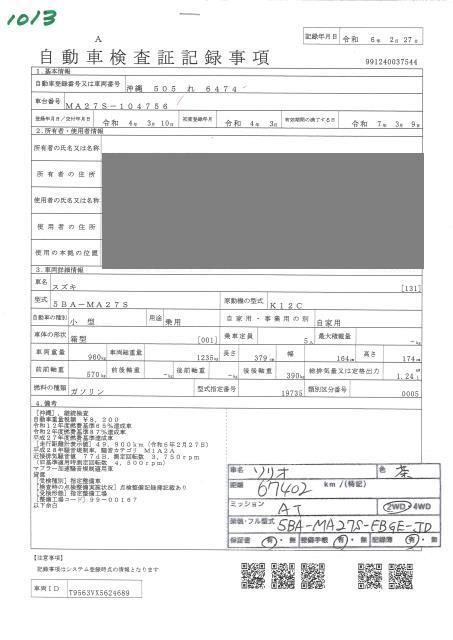 1013
A
記録年月日 令和 6年 2月 27日
自動車検査証記録事項
991240037544
1.基本情報
自動車登録番号又は車両番号 沖縄 505 れ 6474
車台番号 MA27S-104756
登録年月日/交付年月日 令和 4年 3月 10日 初度登録年月 令和 4年 3月 有効期間の満了する日 令和 7年 3月 9日
2.所有者・使用者情報
所有者の氏名又は名称
所有者の住所
使用者の氏名又は名称
使用者の住所
使用の本拠の位置
3.車両詳細情報
車名 スズキ [131]
型式 5BA-MA27S 原動機の型式 K12C
自動車の種別 小型 用途 乗用 自家用・事業用の別 自家用
車体の形状 箱型 [001] 乗車定員 5人 最大積載量 -kg
車両重量 960kg 車両総重量 1235kg 長さ 379cm 幅 164cm 高さ 174cm
前前軸重 570kg 前後軸重 -kg 後前軸重 -kg 後後軸重 390kg 総排気量又は定格出力 1.24L
燃料の種類 ガソリン 型式指定番号 19735 類別区分番号 0005
4.備考
[沖縄],継続検査
自動車重量税額 ¥8,200
令和12年度燃費基準65%達成車
令和2年度燃費基準87%達成車
平成27年度燃費基準達成車
[走行距離計表示値] 49,900km (令和6年2月27日)
平成28年騒音規制車,騒音カテゴリ M1A2A
近接排気騒音値 77dB,測定回転数 3,750rpm
(旧基準適用時測定回転数 4,500rpm)
マフラー加速騒音規制適用車
[受検種別] 指定整備車
[検査時の点検整備実施状況] 点検整備記録簿記載あり
[受検形態] 指定整備工場
[整備工場コード] 99-00167
以下余白
車名 ソリオ 色 茶
距離 67402 km/(特記)
ミッション AT 2WD・4WD
装備・フル型式 5BA-MA27S-FBGE-JD
保証書 有・無 整備手帳 有・無 記録簿 有・無
【注意事項】
記録事項はシステム登録時点の情報となります
車両ID T9563VX5624689